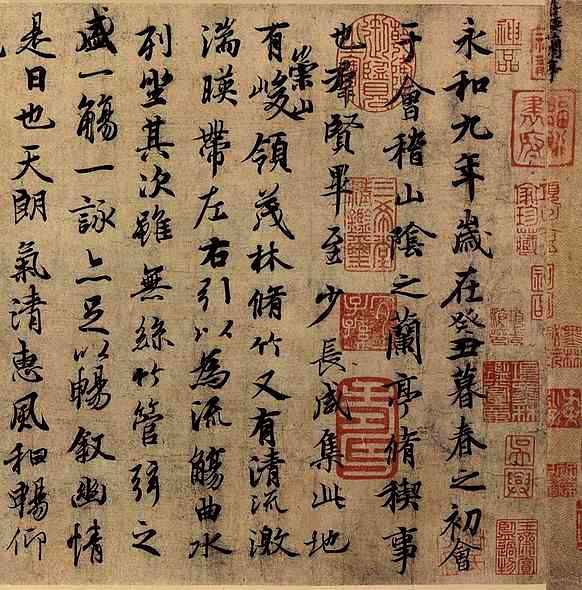 神品
永和九年歲在癸丑暮春之初會
于會稽山陰之蘭亭脩稧事
也羣賢畢至少長咸集此地
有崇山峻領茂林脩竹又有清流激
湍暎帶左右引以為流觴曲水
列坐其次雖無絲竹管弦之
盛一觴一詠亦足以暢敘幽情
是日也天朗氣清惠風和暢仰
三希堂精鑑璽
宜子孫